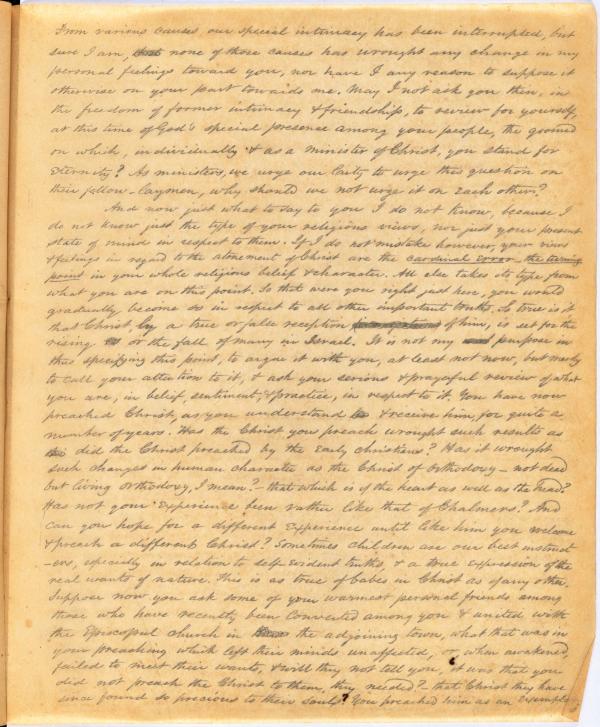 From various causes our special intimacy has been interrupted, but
sure I am, that none of those causes has wrought any change in my
personal feelings toward you, nor have I any reason to suppose it
otherwise on your part towards me. May I not ask you then, in
the freedom of former intimacy & friendship, to review for yourself,
at this time of God's special presence among your people, the ground
on which, individually & as a minister of Christ, you stand for
Eternity? As ministers, we urge our laity to urge this question on
their fellow-laymen, why should we not urge it on each other?
And now just what to say to you I do not know, because I
do not know just the type of your religious views, nor just your present
state of mind in respect to them. If I do not mistake however, your views
& feelings in regard to the atonement of Christ are the cardinal error - the turning
point in your whole religious belief & character. All else takes its type from
what you are on this point. So that were you right just here, you would
gradually become so in respect to all other important truths. So true is it
that Christ by a true or false reception of him, is set for the
rising or the fall of many in Israel. It is not my purpose in
thus specifying this point, to argue it with you, at least not now, but merely
to call your attention to it, & ask your serious & prayerful review of what
you are, in belief, sentiment, & practice, in respect to it. You have now
preached Christ, as you understand & receive him, for quite a
number of years. Has the Christ you preach wrought such results as
did the Christ preached by the Early Christians? Has it wrought
such changes in human character as the Christ of Orthodoxy - not dead
but living Orthodoxy, I mean? - that which is of the heart as well as the head?
Has not your Experience been rather like that of Chalmers? And
can you hope for a different Experience until like him you welcome
& preach a different Christ? Sometimes children are our best instruct
-ors, especially in relation to self-evident truths, & a true expression of the
real wants of nature. This is as true of babes in Christ as of any other.
Suppose now you ask some of your warmest personal friends among
those who have recently been Converted among you & united with
the Episcopal church in the adjoining town, what that was in
your preaching which left their minds unaffected, or, when awakened,
failed to meet their wants, & will they not tell you, it was that you
did not preach the Christ to them, they needed? - that Christ they have
since found so precious to their souls? You preached him as an Example